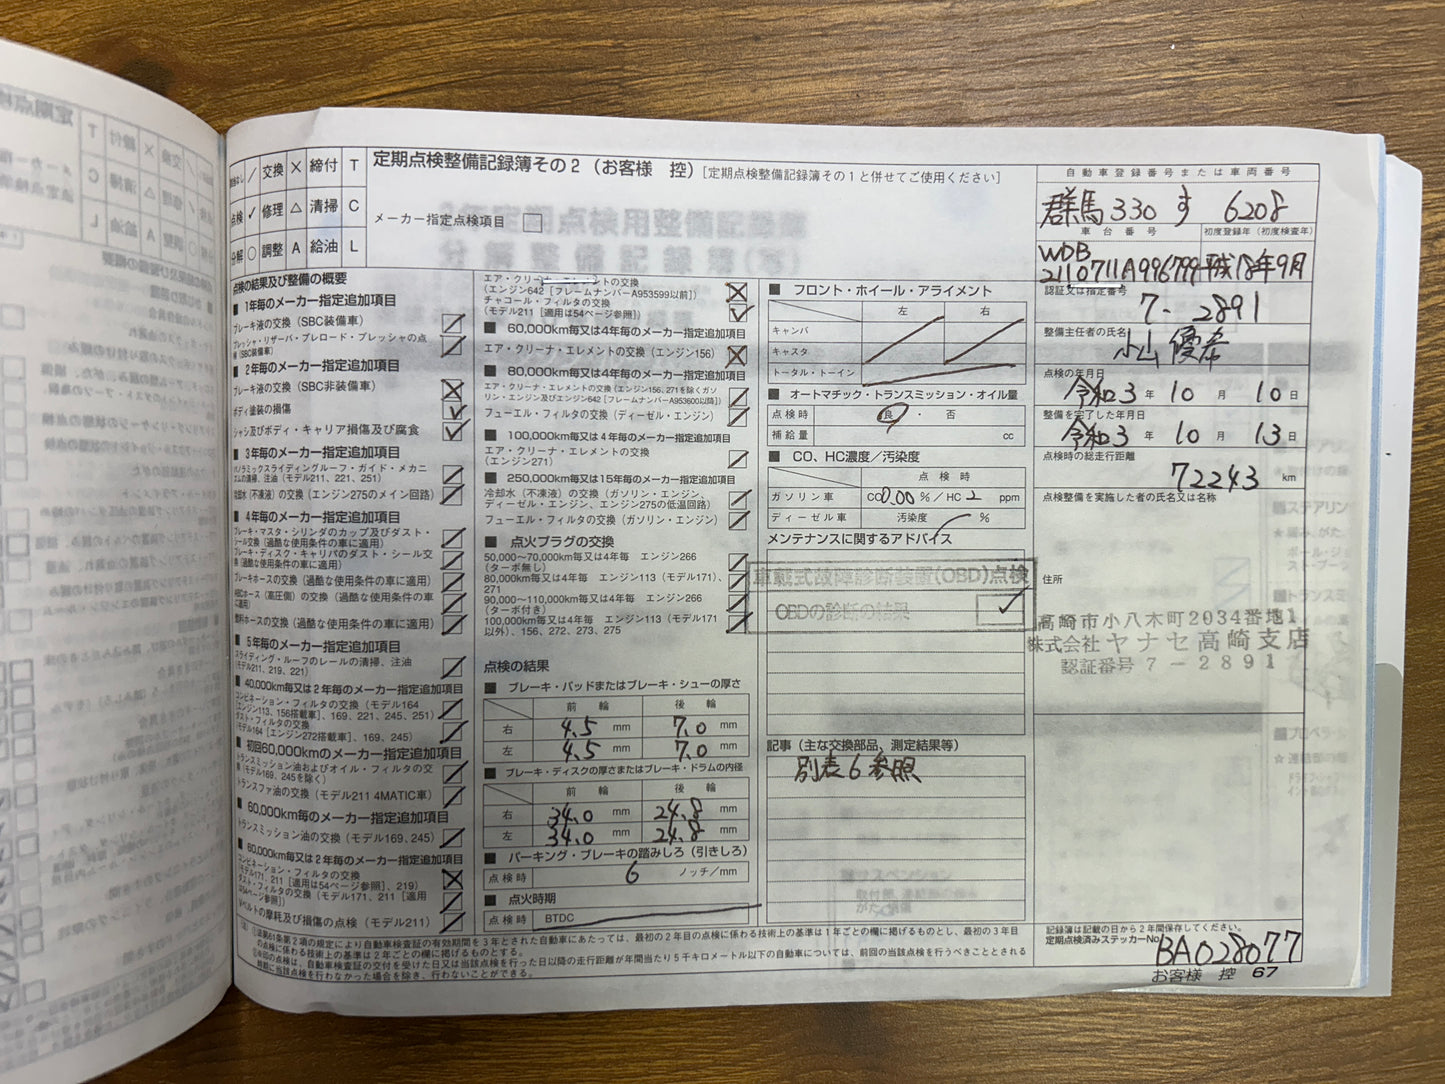 交換 × 締付 T
点検 ✓ 修理 △ 清掃 C
分解 ○ 調整 A 給油 L
定期点検整備記録簿その2（お客様 控）[定期点検整備記録簿その1と併せてご使用ください]
メーカー指定点検項目
点検の結果及び整備の概要
■ 1年毎のメーカー指定追加項目
ブレーキ液の交換（SBC装備車）
プレッシャ・リザーバ・プレロード・プレッシャの点
検（SBC装備車）
■ 2年毎のメーカー指定追加項目
ブレーキ液の交換（SBC非装備車）
ボディ塗装の損傷
シャシ及びボディ・キャリア損傷及び腐食
■ 3年毎のメーカー指定追加項目
パノラミックスライディングルーフ・ガイド・メカニ
ズムの清掃、注油（モデル211、221、251）
冷却水（不凍液）の交換（エンジン275のメイン回路）
■ 4年毎のメーカー指定追加項目
ブレーキ・マスタ・シリンダのカップ及びダスト・
シール交換（過酷な使用条件の車に適用）
ブレーキ・ディスク・キャリパのダスト・シール交
換（過酷な使用条件の車に適用）
ブレーキホースの交換（過酷な使用条件の車に適用）
ABCホース（高圧側）の交換（過酷な使用条件の車
に適用）
燃料ホースの交換（過酷な使用条件の車に適用）
■ 5年毎のメーカー指定追加項目
スライディング・ルーフのレールの清掃、注油
（モデル211、219、221）
■ 40,000km毎又は2年毎のメーカー指定追加項目
コンビネーション・フィルタの交換（モデル164
[エンジン113、156搭載車]、169、221、245、251）
ダスト・フィルタの交換
（モデル164 [エンジン272搭載車]、169、245）
■ 初回60,000kmのメーカー指定追加項目
トランスミッション油およびオイル・フィルタの交
換（モデル169、245を除く）
トランスファ油の交換（モデル211 4MATIC車）
■ 60,000km毎のメーカー指定追加項目
トランスミッション油の交換（モデル169、245）
■ 60,000km毎又は2年毎のメーカー指定追加項目
コンビネーション・フィルタの交換
（モデル171、211 [適用は54ページ参照]、219）
ダスト・フィルタの交換（モデル171、211 [適用
は54ページ参照]）
Vベルトの摩耗及び損傷の点検（モデル211）
エア・クリーナ・エレメントの交換
（エンジン642 [フレームナンバーA953599以前]）
チャコール・フィルタの交換
（モデル211 [適用は54ページ参照]）
■ 60,000km毎又は4年毎のメーカー指定追加項目
エア・クリーナ・エレメントの交換（エンジン156）
■ 80,000km毎又は4年毎のメーカー指定追加項目
エア・クリーナ・エレメントの交換（エンジン156、271を除くガソ
リン・エンジン及びエンジン642 [フレームナンバーA953600以降]）
フューエル・フィルタの交換（ディーゼル・エンジン）
■ 100,000km毎又は4年毎のメーカー指定追加項目
エア・クリーナ・エレメントの交換
（エンジン271）
■ 250,000km毎又は15年毎のメーカー指定追加項目
冷却水（不凍液）の交換（ガソリン・エンジン、
ディーゼル・エンジン、エンジン275の低温回路）
フューエル・フィルタの交換（ガソリン・エンジン）
■ 点火プラグの交換
50,000～70,000km毎又は4年毎 エンジン266
（ターボ無し）
80,000km毎又は4年毎 エンジン113（モデル171）、
271
90,000～110,000km毎又は4年毎 エンジン266
（ターボ付き）
100,000km毎又は4年毎 エンジン113（モデル171
以外）、156、272、273、275
点検の結果
■ ブレーキ・パッドまたはブレーキ・シューの厚さ
前 輪 後 輪
右 4.5 mm 7.0 mm
左 4.5 mm 7.0 mm
■ ブレーキ・ディスクの厚さまたはブレーキ・ドラムの内径
前 輪 後 輪
右 34.0 mm 24.8 mm
左 34.0 mm 24.8 mm
■ パーキング・ブレーキの踏みしろ（引きしろ）
点検時 6 ノッチ/mm
■ 点火時期
点検時 BTDC
■ フロント・ホイール・アライメント
左 右
キャンバ
キャスタ
トータル・トーイン
■ オートマチック・トランスミッション・オイル量
点検時 良 ・ 否
補給量 cc
■ CO、HC濃度／汚染度
点検時
ガソリン車 CO 0.00 %／HC 2 ppm
ディーゼル車 汚染度 %
メンテナンスに関するアドバイス
車載式故障診断装置(OBD)点検
OBDの診断の結果 ✓
記事（主な交換部品、測定結果等）
別表6参照
自動車登録番号または車両番号
群馬 330 す 6208
車台番号 初度登録年（初度検査年）
WDB
2110711A996799 平成18年9月
認証又は指定番号
7-2891
整備主任者の氏名
小山 優希
点検の年月日
令和3年10月10日
整備を完了した年月日
令和3年10月13日
点検時の総走行距離
72243 km
点検整備を実施した者の氏名又は名称
住所
高崎市小八木町2034番地1
株式会社ヤナセ高崎支店
認証番号 7-2891
（注）1.法第61条第2項の規定により自動車検査証の有効期間を3年とされた自動車にあたっては、最初の2年目の点検に係わる技術上の基準は1年ごとの欄に掲げるものとし、最初の3年目
の点検に係わる技術上の基準は2年ごとの欄に掲げるものとする。
2.※印の点検は、自動車検査証の交付を受けた日又は当該点検を行った日以降の走行距離が年間当たり5千キロメートル以下の自動車については、前回の当該点検を行うべきこととされる
時期に当該点検を行わなかった場合を除き、行わないことができる。
記録簿は記載の日から2年間保存してください。
定期点検済みステッカーNo. BA028077
お客様 控 67